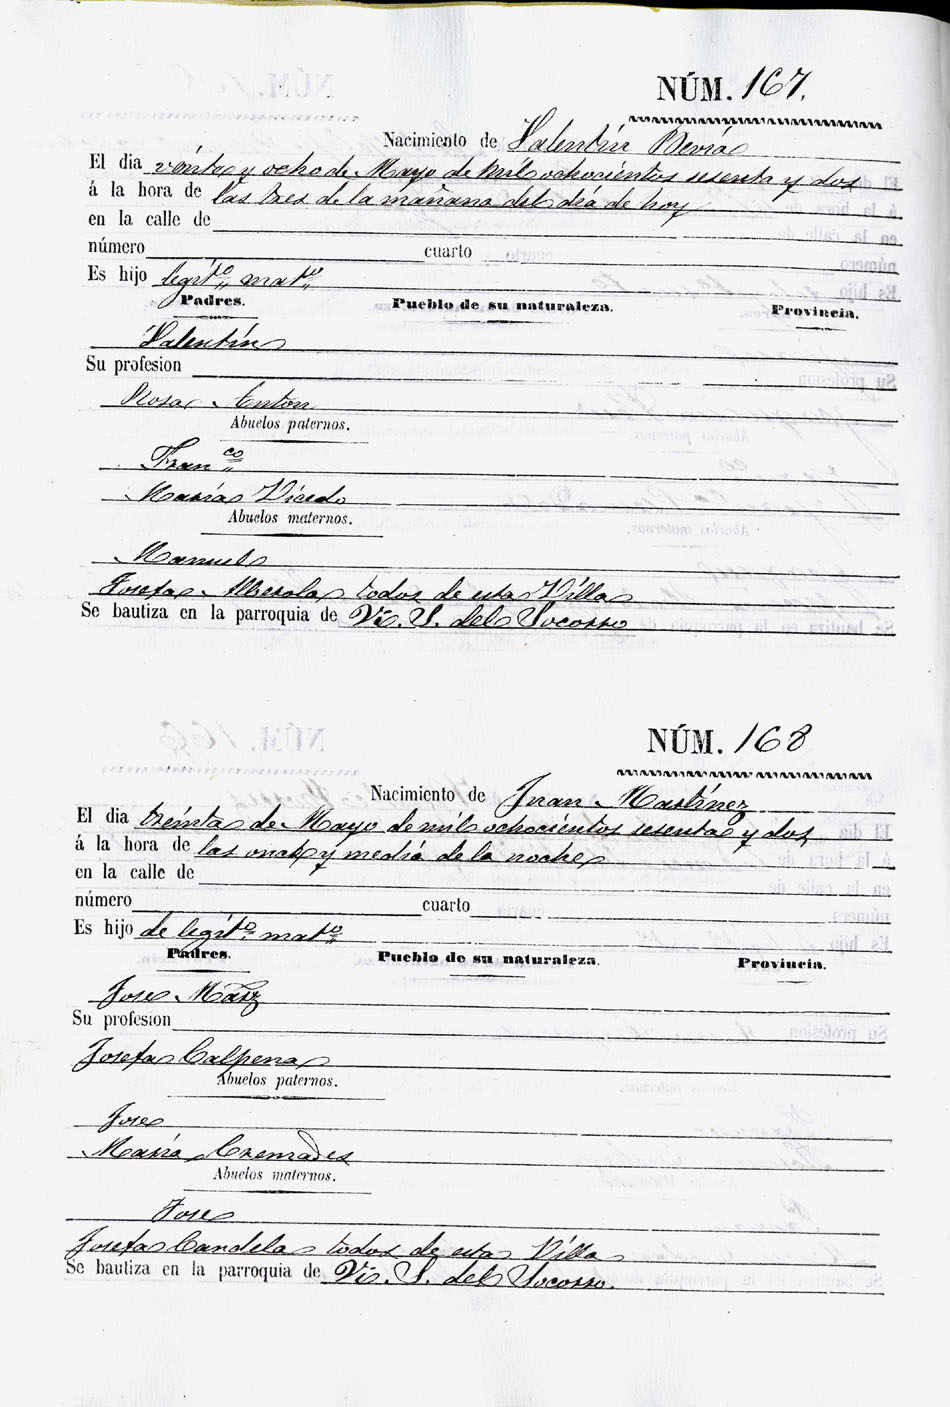 NÚM. 167.
Nacimiento de Valentín Beviá
El dia veinte y ocho de Mayo de mil ochocientos sesenta y dos
á la hora de las tres de la mañana del día de hoy
en la calle de
número cuarto
Es hijo legít.o mat.o
Padres. Pueblo de su naturaleza. Provincia.
Valentín
Su profesion
Rosa Antón
Abuelos paternos.
Fran.co
María Vicedo
Abuelos maternos.
Manuel
Josefa Alberola todos de esta Villa
Se bautiza en la parroquia de N. S. del Socorro
NÚM. 168
Nacimiento de Juan Martínez
El dia treinta de Mayo de mil ochocientos sesenta y dos
á la hora de las once y media de la noche
en la calle de
número cuarto
Es hijo de legít.o mat.o
Padres. Pueblo de su naturaleza. Provincia.
Jose Marz
Su profesion
Josefa Calpena
Abuelos paternos.
Jose
María Cremades
Abuelos maternos.
Jose
Josefa Candela todos de esta Villa
Se bautiza en la parroquia de N. S. del Socorro.